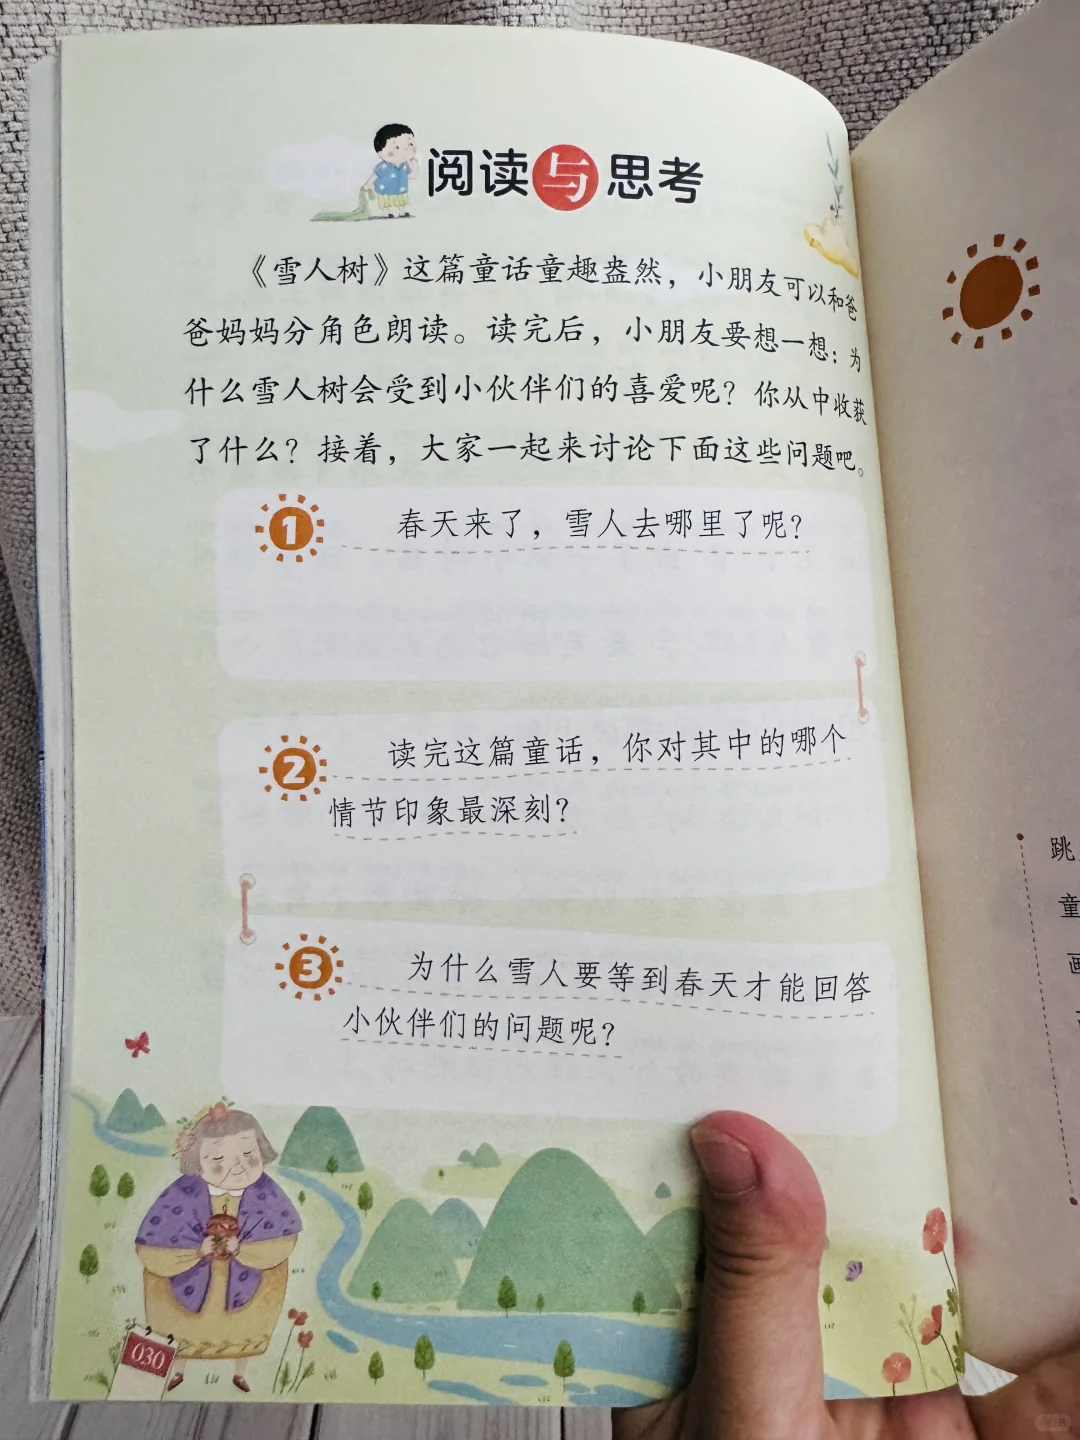 阅读与思考
《雪人树》这篇童话童趣盎然，小朋友可以和爸
爸妈妈分角色朗读。读完后，小朋友要想一想：为
什么雪人树会受到小伙伴们的喜爱呢？你从中收获
了什么？接着，大家一起来讨论下面这些问题吧。
1 春天来了，雪人去哪里了呢？
2 读完这篇童话，你对其中的哪个
情节印象最深刻？
3 为什么雪人要等到春天才能回答
小伙伴们的问题呢？
030
跳
童